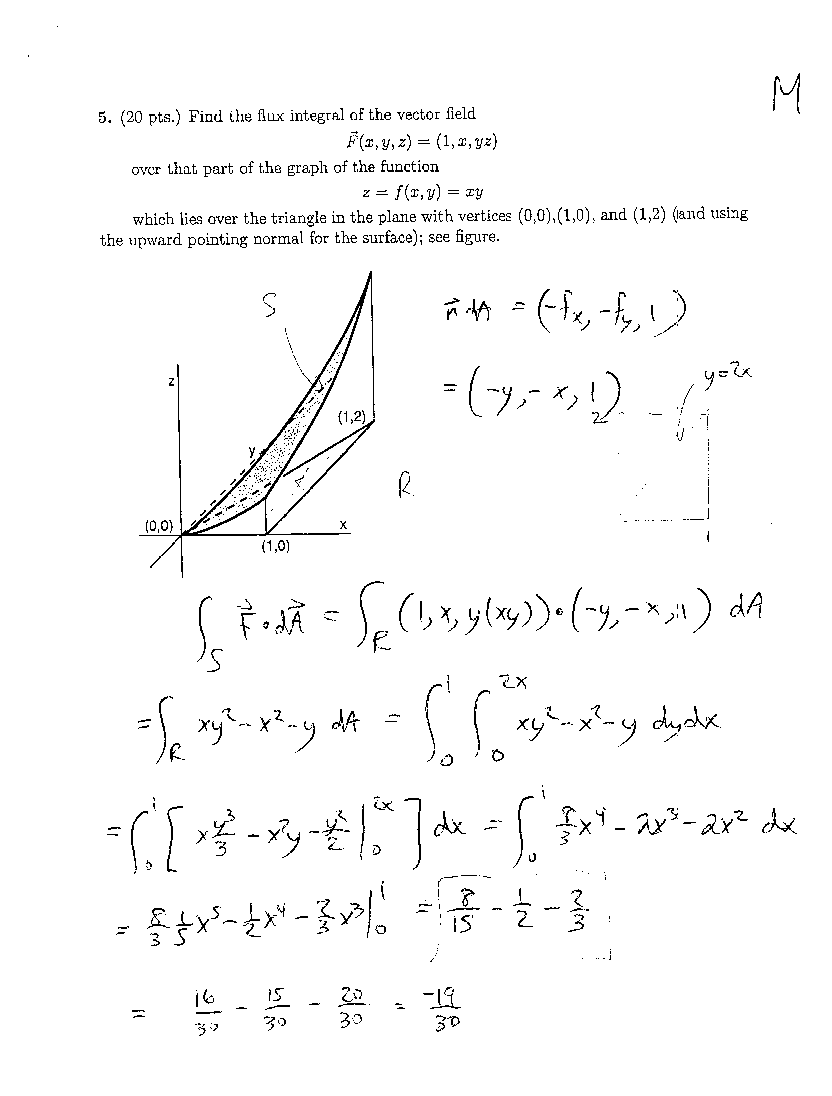 M
5. (20 pts.) Find the flux integral of the vector field
F⃗(x, y, z) = (1, x, yz)
over that part of the graph of the function
z = f(x, y) = xy
which lies over the triangle in the plane with vertices (0,0),(1,0), and (1,2) (and using
the upward pointing normal for the surface); see figure.
S
z
y
(1,2)
(0,0)
x
(1,0)
R
n⃗ dA = (-fx, -fy, 1)
= (-y, -x, 1)
2
y=2x
1
∫_S F⃗ • dA⃗ = ∫_R (1, x, y(xy)) • (-y, -x, 1) dA
= ∫_R xy² - x² - y dA = ∫₀¹ ∫₀^2x xy² - x² - y dydx
= ∫₀¹ [ x y³/3 - x²y - y²/2 |₀^2x ] dx = ∫₀¹ 8/3 x⁴ - 2x³ - 2x² dx
= 8/3 1/5 x⁵ - 1/2 x⁴ - 2/3 x³ |₀¹ = 8/15 - 1/2 - 2/3
= 16/30 - 15/30 - 20/30 = -19/30